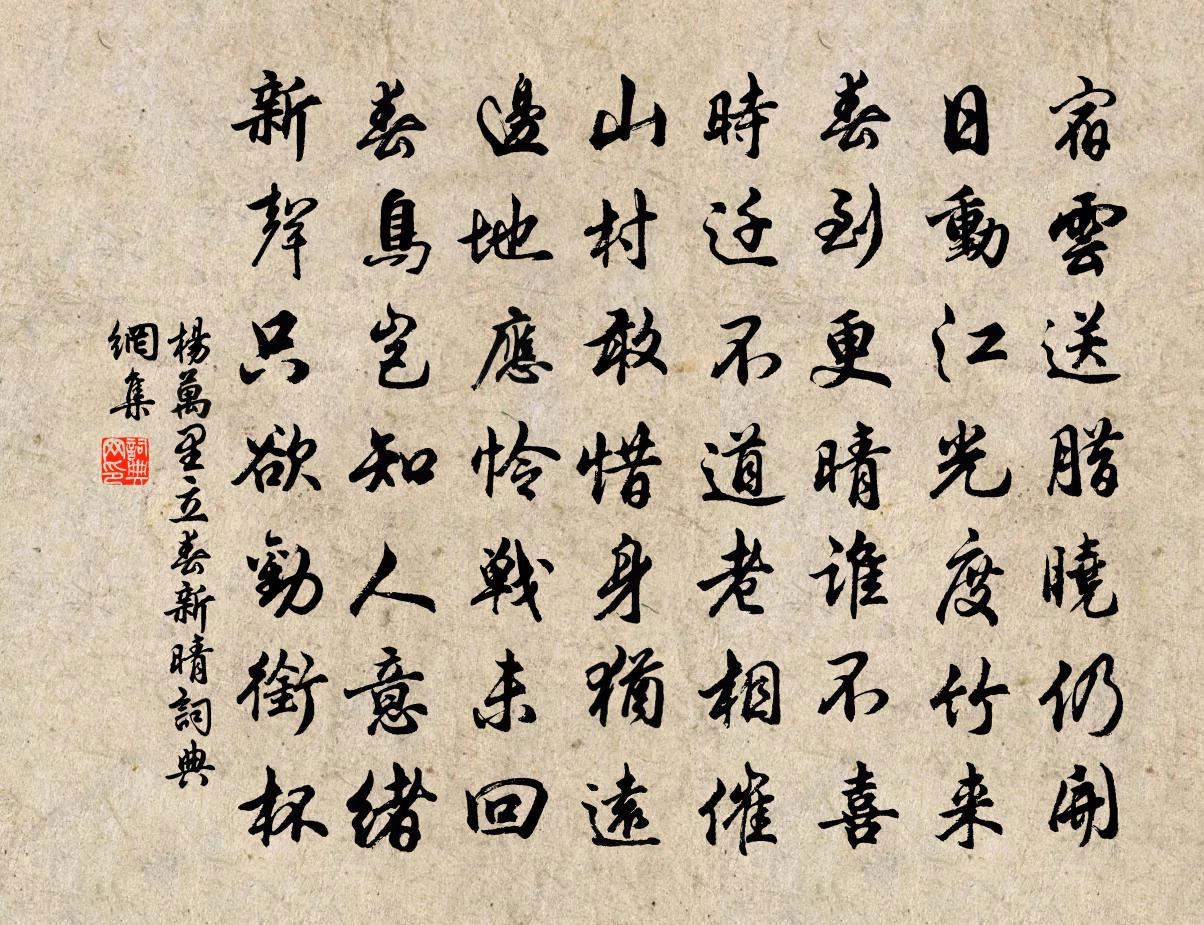 宿雲送腊曉仍開
日動江光度竹来
春到更晴誰不喜
時迁不道老相催
山村敢惜身猶遠
邊地應怜戦未回
春鳥豈知人意緒
新聲只欲勸銜杯
楊萬里立春新晴詞典
網集
詞典
网印